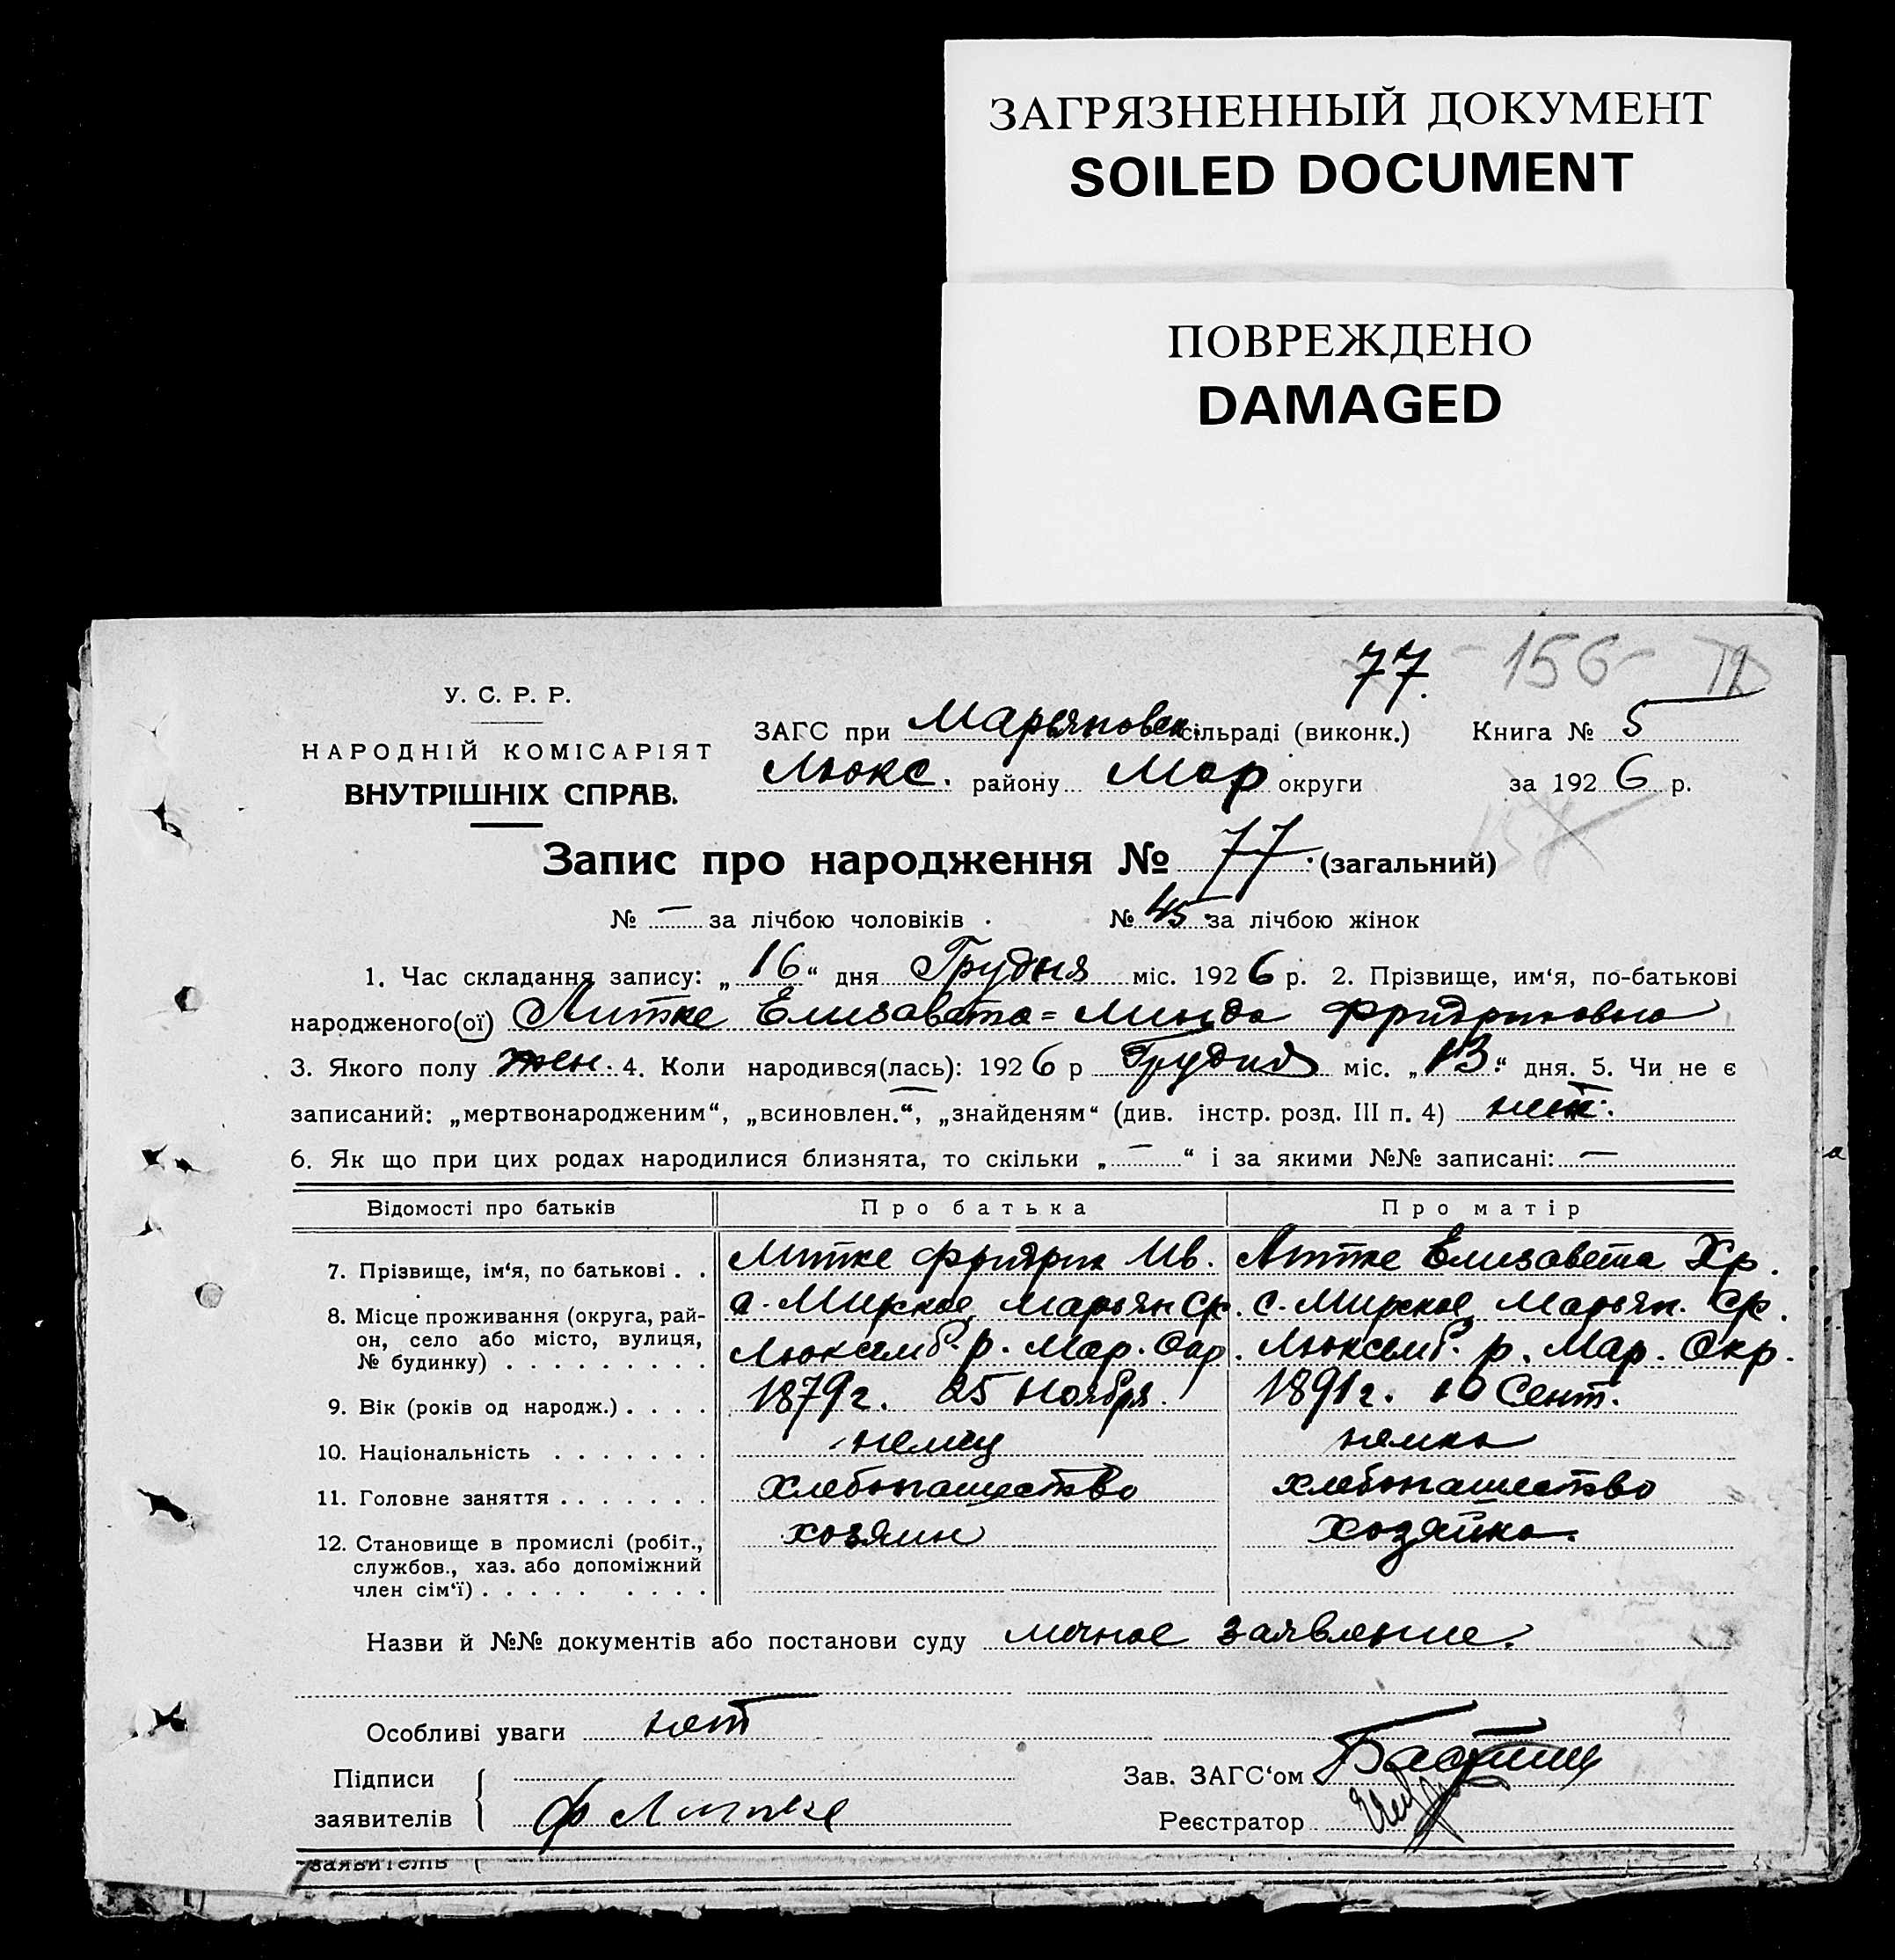 ЗАГРЯЗНЕННЫЙ ДОКУМЕНТ
SOILED DOCUMENT
ПОВРЕЖДЕНО
DAMAGED
77. - 156 -
У. С. Р. Р.
НАРОДНІЙ КОМІСАРІЯТ
ВНУТРІШНІХ СПРАВ.
ЗАГС при Марьяновск. сільраді (виконк.) Книга № 5
Люкс. району Мар округи за 1926 р.
Запис про народження № 77. (загальний)
№ — за лічбою чоловіків № 45 за лічбою жінок
1. Час складання запису: „16“ дня Грудня міс. 1926 р. 2. Прізвище, им‘я, по-батькові
народженого(ої) Литке Елизавета = Линда Фридриховна
3. Якого полу жен. 4. Коли народився(лась): 1926 р Грудня міс. „13“ дня. 5. Чи не є
записаний: „мертвонародженим“, „всиновлен.“, „знайденям“ (див. інстр. розд. III п. 4) нет.
6. Як що при цих родах народилися близнята, то скільки „—“ і за якими №№ записані: —
Відомості про батьків Про батька Про матір
7. Прізвище, ім‘я, по батькові . . Литке Фридрих Ив. Литке Елизавета Хр.
8. Місце проживання (округа, рай-
он, село або місто, вулиця,
№ будинку) . . . . . . . . .
с. Мирское, Марьян Ср. с. Мирское, Марьян. Ср.
Люксемб. р. Мар. Окр. Люксемб. р. Мар. Окр.
9. Вік (років од народж.) . . . . 1879 г. 25 Ноября. 1891 г. 10 Сент.
10. Національність . . . . . . . немец немка
11. Головне заняття . . . . . . хлебопашество хлебопашество
12. Становище в промислі (робіт.,
службов., хаз. або допоміжний
член сім‘ї) . . . . . . . . .
хозяин хозяйка.
Назви й №№ документів або постанови суду личное заявление.
Особливі уваги нет
Підписи
заявителів
Ф Литке
Зав. ЗАГС‘ом
Реєстратор
заявителів